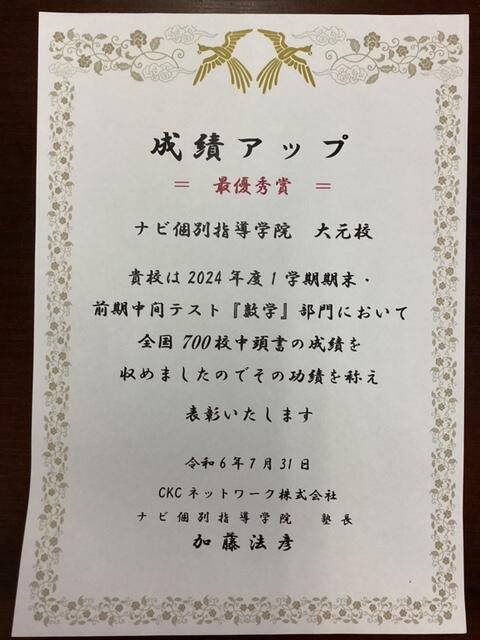 成績アップ
＝ 最優秀賞 ＝
ナビ個別指導学院 大元校
貴校は2024年度1学期期末・
前期中間テスト『数学』部門において
全国700校中頭書の成績を
収めましたのでその功績を称え
表彰いたします
令和6年7月31日
CKCネットワーク株式会社
ナビ個別指導学院 塾長
加藤法彦